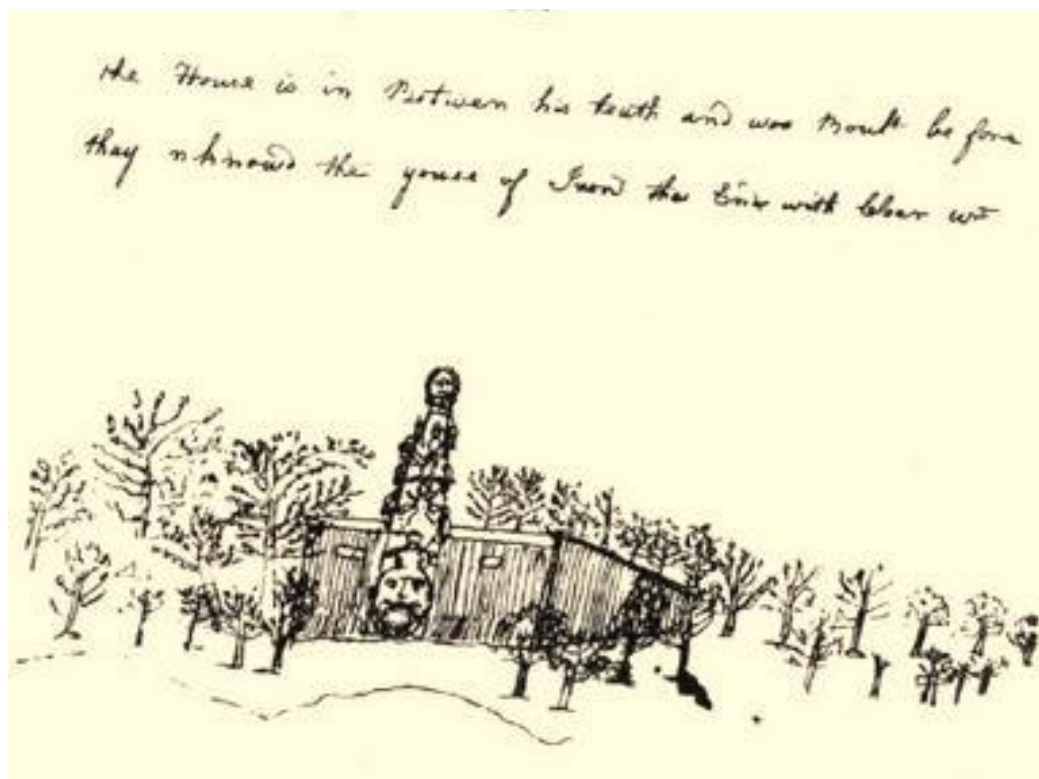 the House is in Between his teath and was Boult before
thay nknowd the youse of Iron the with